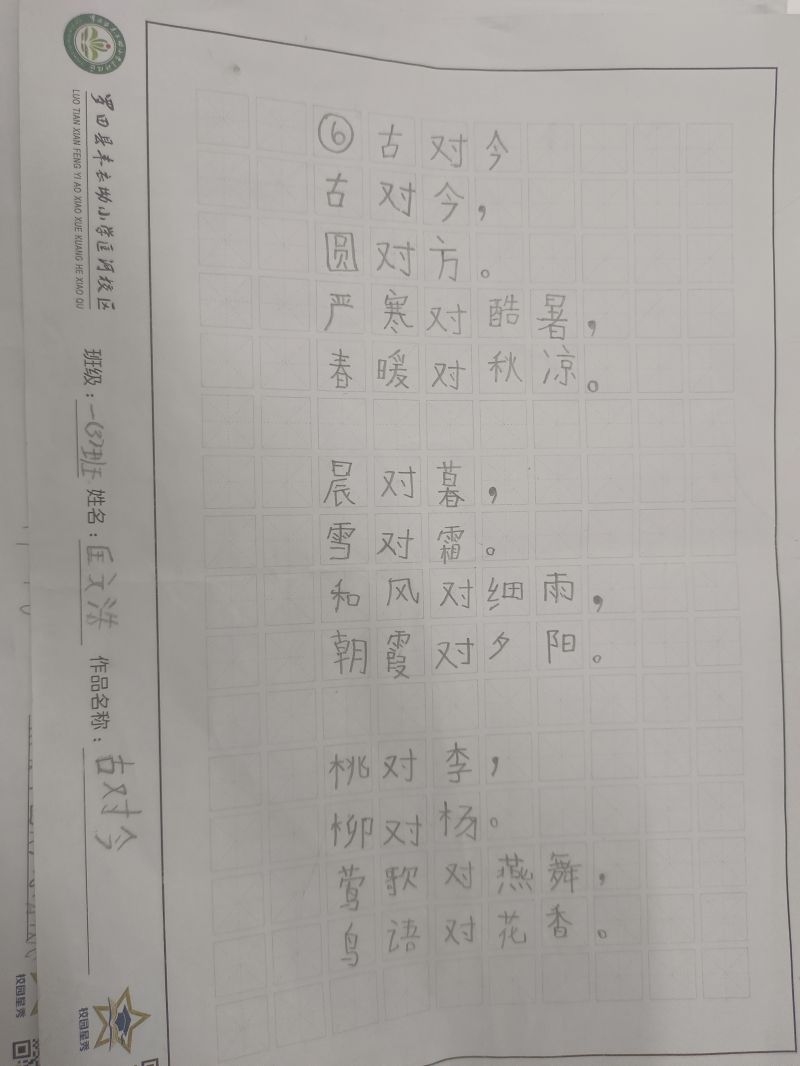 ⑥古对今
古对今，
圆对方。
严寒对酷暑，
春暖对秋凉。
晨对暮，
雪对霜。
和风对细雨，
朝霞对夕阳。
桃对李，
柳对杨。
莺歌对燕舞，
鸟语对花香。
罗田县丰衣坳小学匡河校区
LUO TIAN XIAN FENG YI AO XIAO XUE KUANG HE XIAO QU
班级：一(3)班 姓名：匡文洪 作品名称：古对今
校园星秀
校园星秀